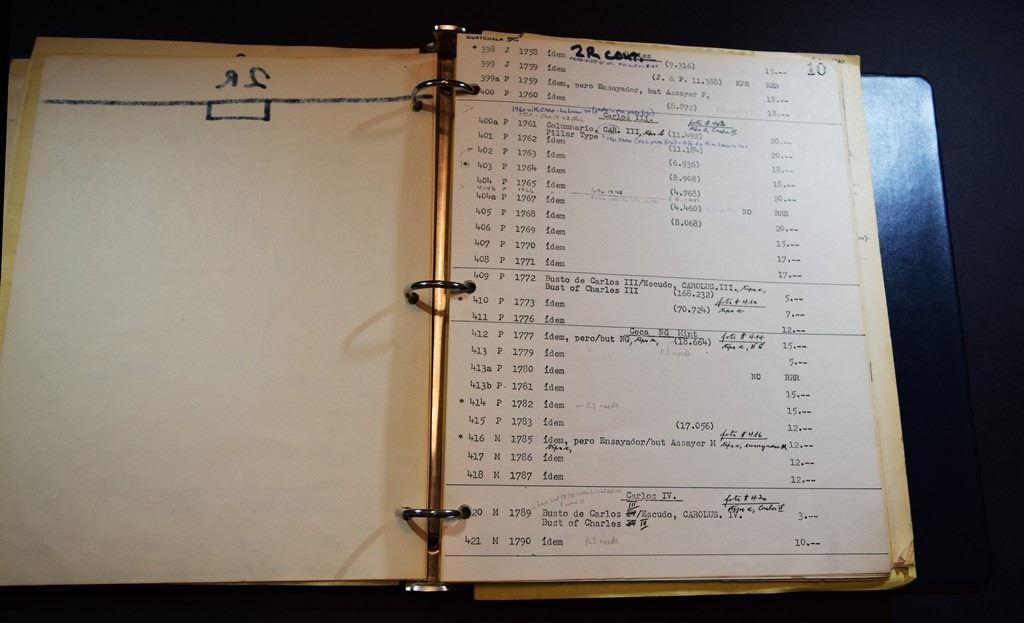 2R
GUATEMALA
10
* 398 J 1758 ídem 2R CONT. (9.316) 15.--
399 J 1759 ídem (J. & P. 11.388) KPR RRR
399a P 1759 ídem, pero Ensayador, but Assayer P, 18.--
400 P 1760 ídem (8.872) 18.--
Carlos III.
400a P 1761 Columnario, CAR. III, (11.492) 20.--
Pillar Type
401 P 1762 ídem (11.184) 20.--
402 P 1763 ídem (6.936) 18.--
403 P 1764 ídem (8.908) 18.--
404 P 1765 ídem (4.768) 20.--
404a P 1767 ídem (4.460) NO RRR
405 P 1768 ídem (8.068) 20.--
406 P 1769 ídem 15.--
407 P 1770 ídem 17.--
408 P 1771 ídem 17.--
409 P 1772 Busto de Carlos III/Escudo, CAROLUS.III., 5.--
Bust of Charles III (168.232)
* 410 P 1773 ídem (70.724) 7.--
411 P 1776 ídem 12.--
Ceca NG Mint
412 P 1777 ídem, pero/but NG, (18.664) 15.--
413 P 1779 ídem 5.--
413a P 1780 ídem NO RRR
413b P- 1781 ídem 15.--
* 414 P 1782 ídem 15.--
415 P 1783 ídem (17.056) 12.--
* 416 M 1785 ídem, pero Ensayador/but Assayer M foto # 416 12.--
417 M 1786 ídem 12.--
418 M 1787 ídem 12.--
Carlos IV.
20 M 1789 Busto de Carlos III/Escudo, CAROLUS. IV. 3.--
Bust of Charles III
421 M 1790 ídem 10.--